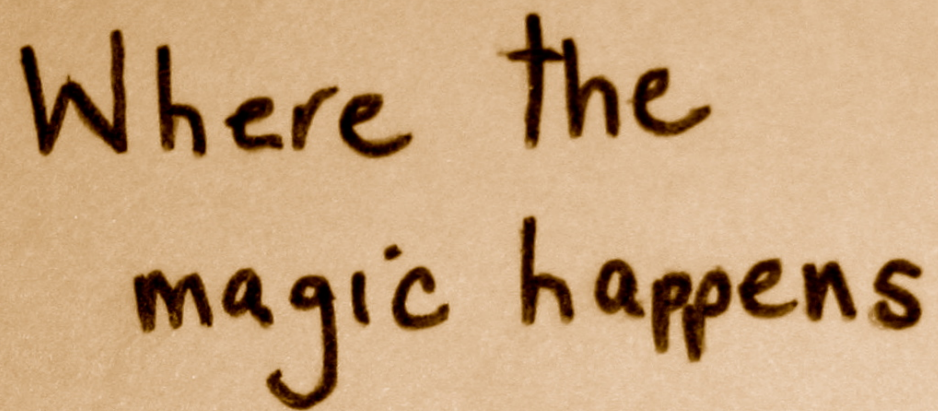 Where the
magic happens